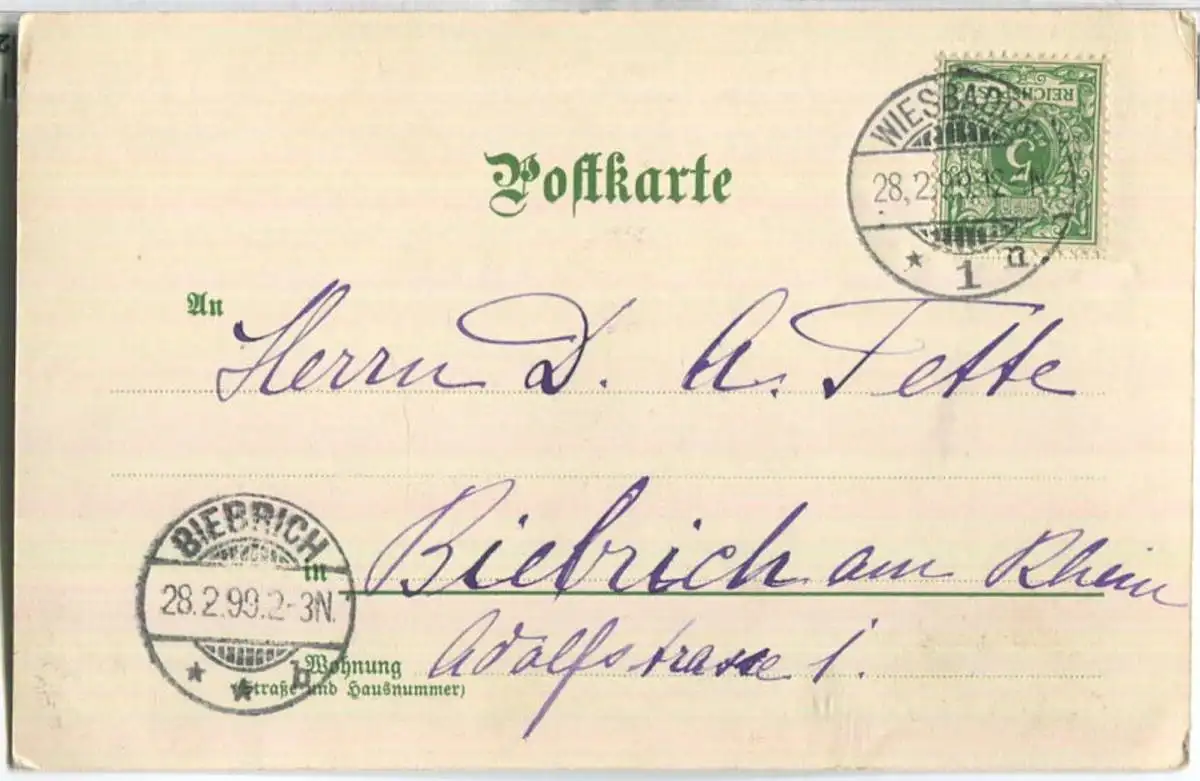 REICHSPOST
5
WIESBADEN
28.2.99.12-1N.
* 1 a.
Postkarte
An
Herrn D. A. Tette
BIEBRICH
28.2.99.2-3N.
* * b
in
Biebrich am Rhein
Wohnung
(Straße und Hausnummer)
Adolfstrasse 1.